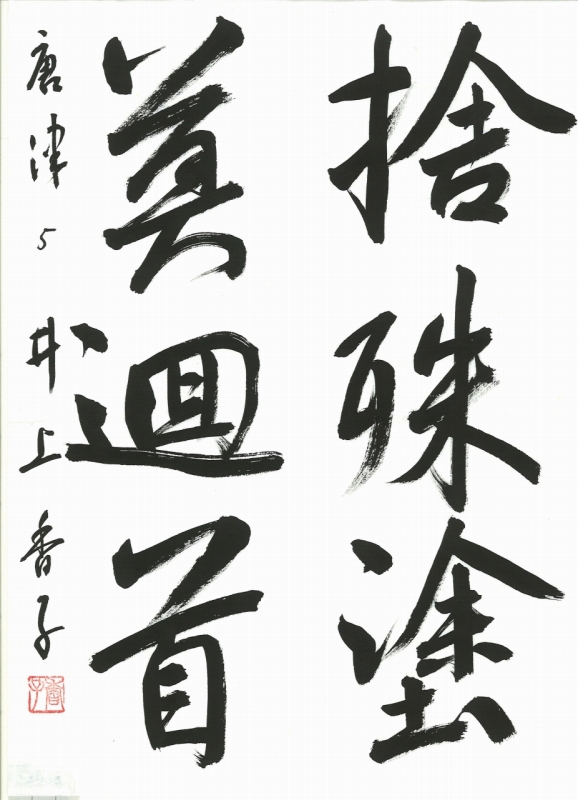 捨殊塗
莫迴首
唐津 5 井上香子
香子